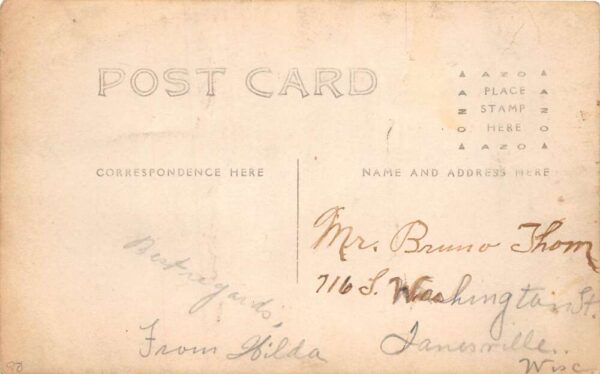 POST CARD
AZO
PLACE
STAMP
HERE
AZO
CORRESPONDENCE HERE
NAME AND ADDRESS HERE
Best regards,
From Hilda
Mr. Bruno Thom
716 S. Washington St.
Janesville.
Wisc